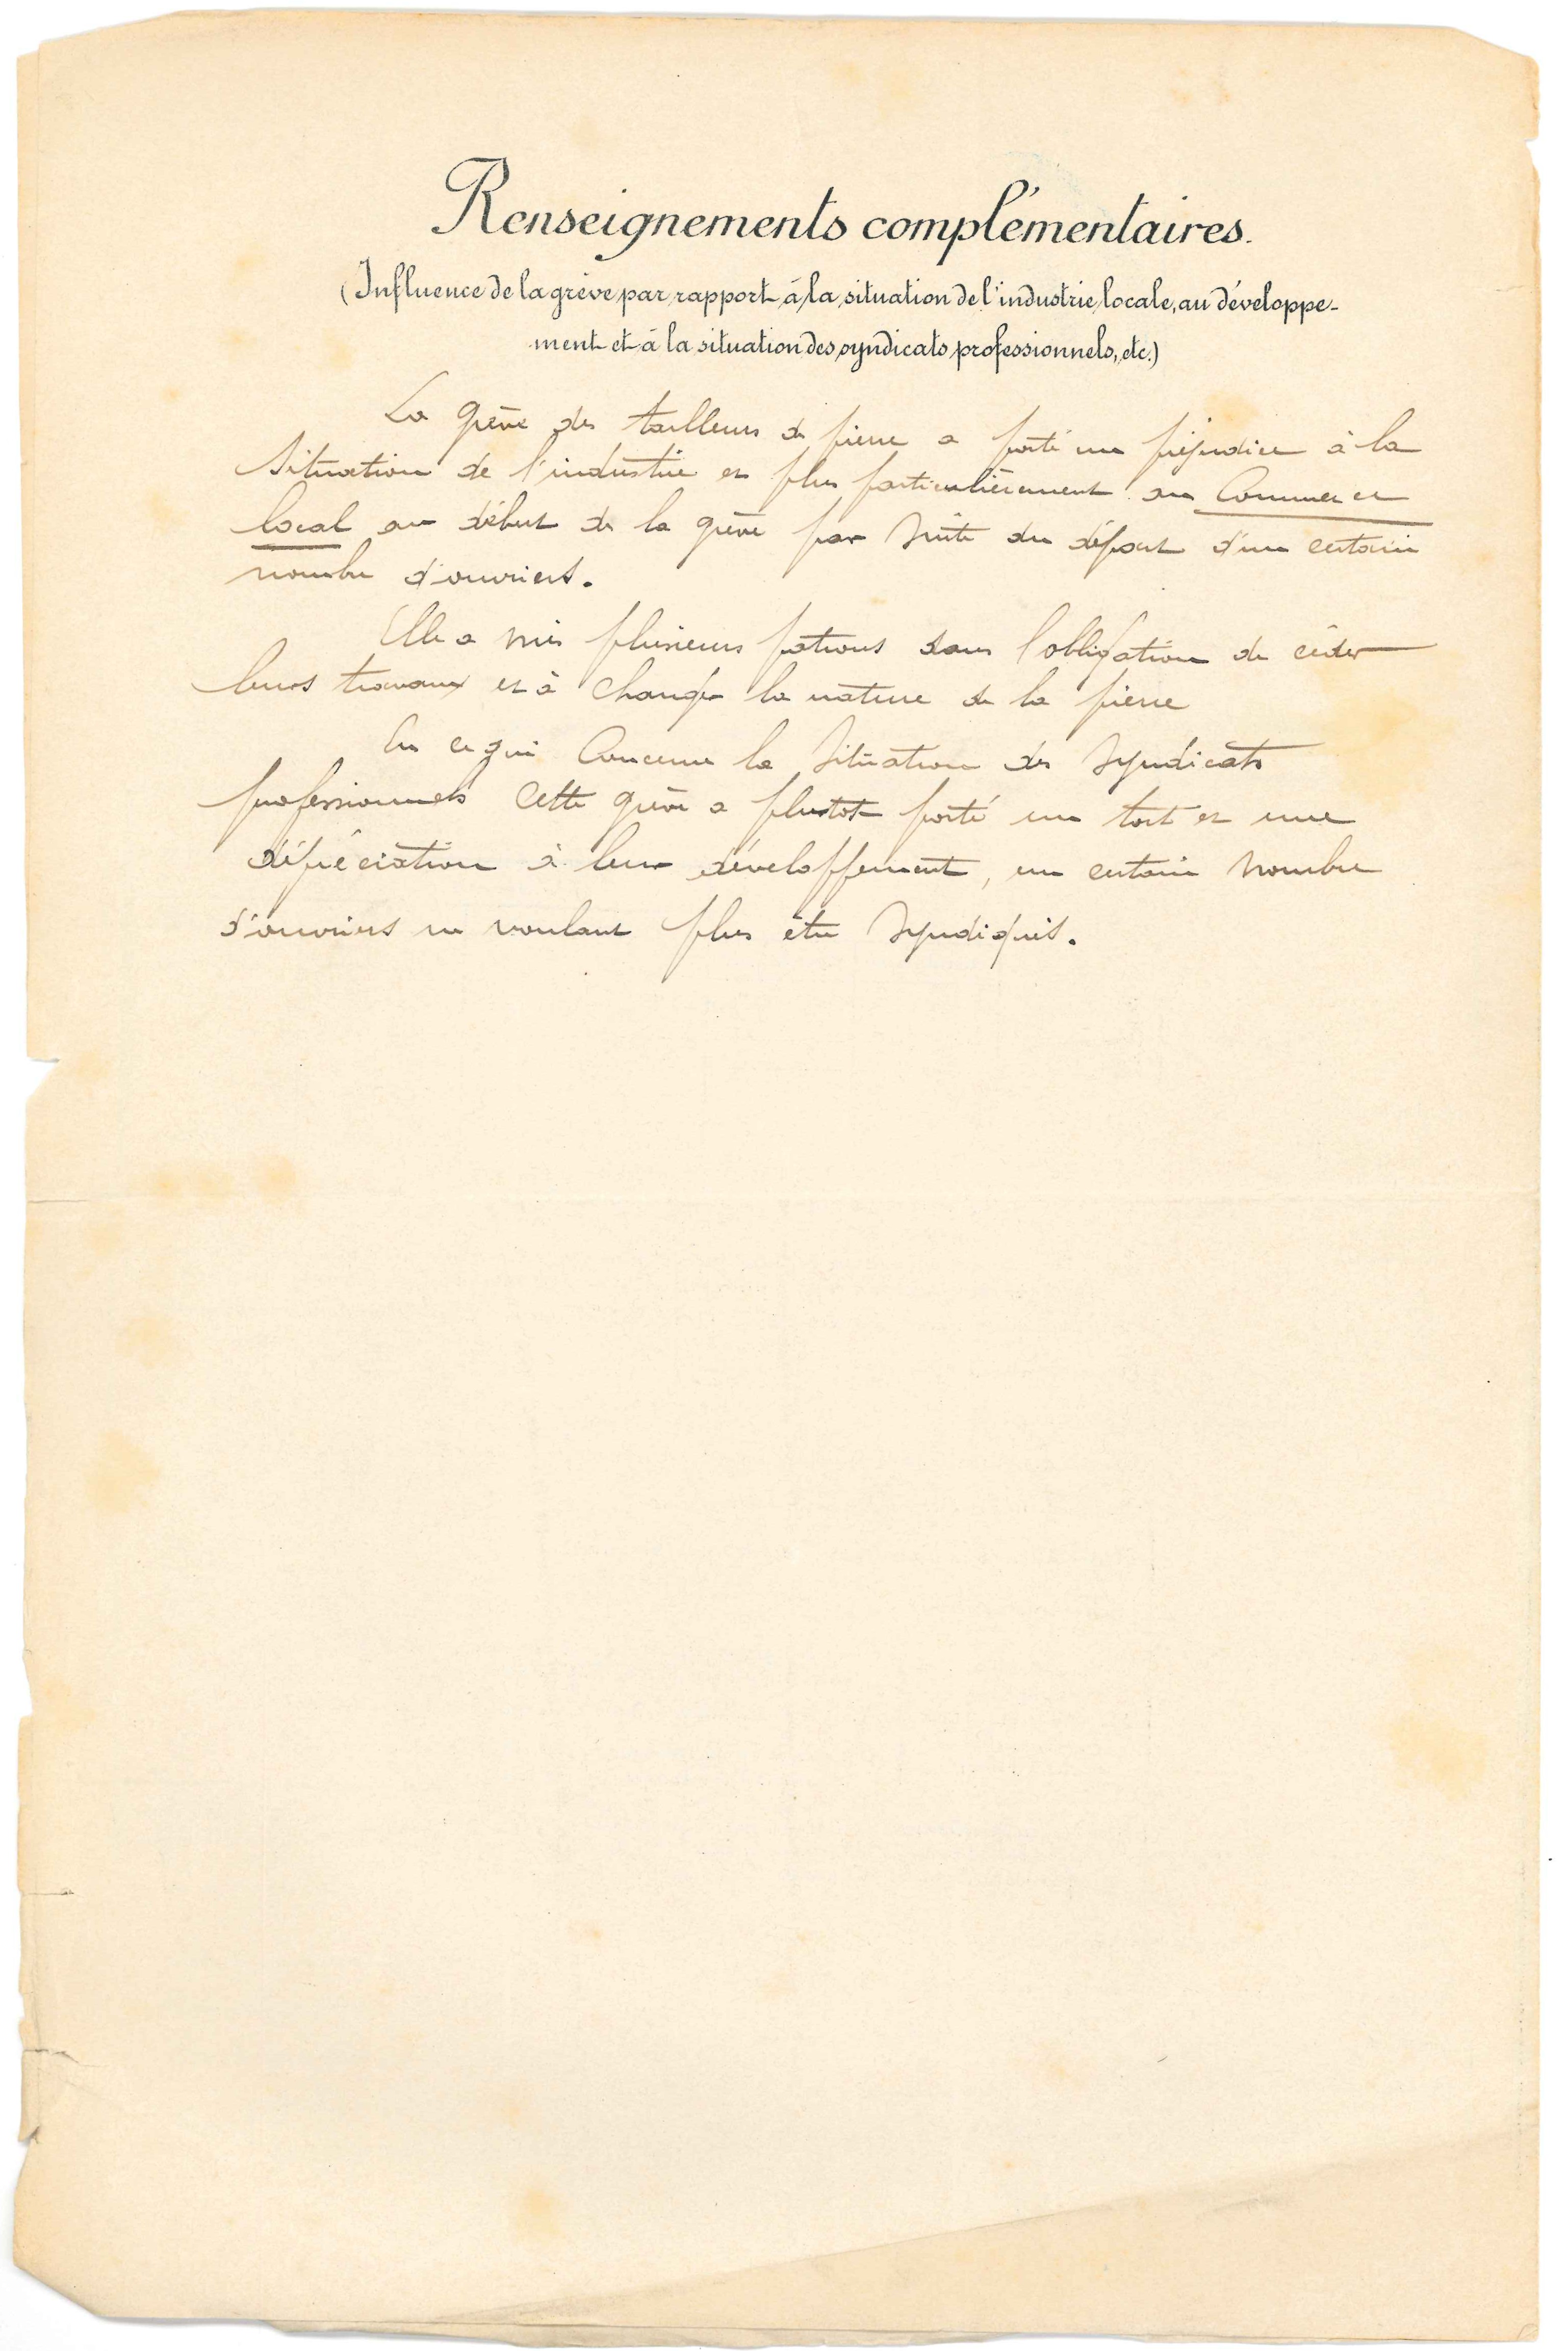 Renseignements complémentaires.
(Influence de la grève par rapport à la situation de l'industrie locale, au développe-
ment et à la situation des syndicats professionnels, etc.)
La grève des tailleurs de pierre a porté un préjudice à la
situation de l'industrie et plus particulièrement au Commerce
local au début de la grève par suite du départ d'un certain
nombre d'ouvriers.
Elle a mis plusieurs patrons dans l'obligation de céder
leurs travaux et à changer la nature de la pierre
En ce qui Concerne la situation des syndicats
professionnels Cette grève a plutot porté un tort et une
dépréciation à leur développement, un certain nombre
d'ouvriers ne voulant plus être syndiqués.